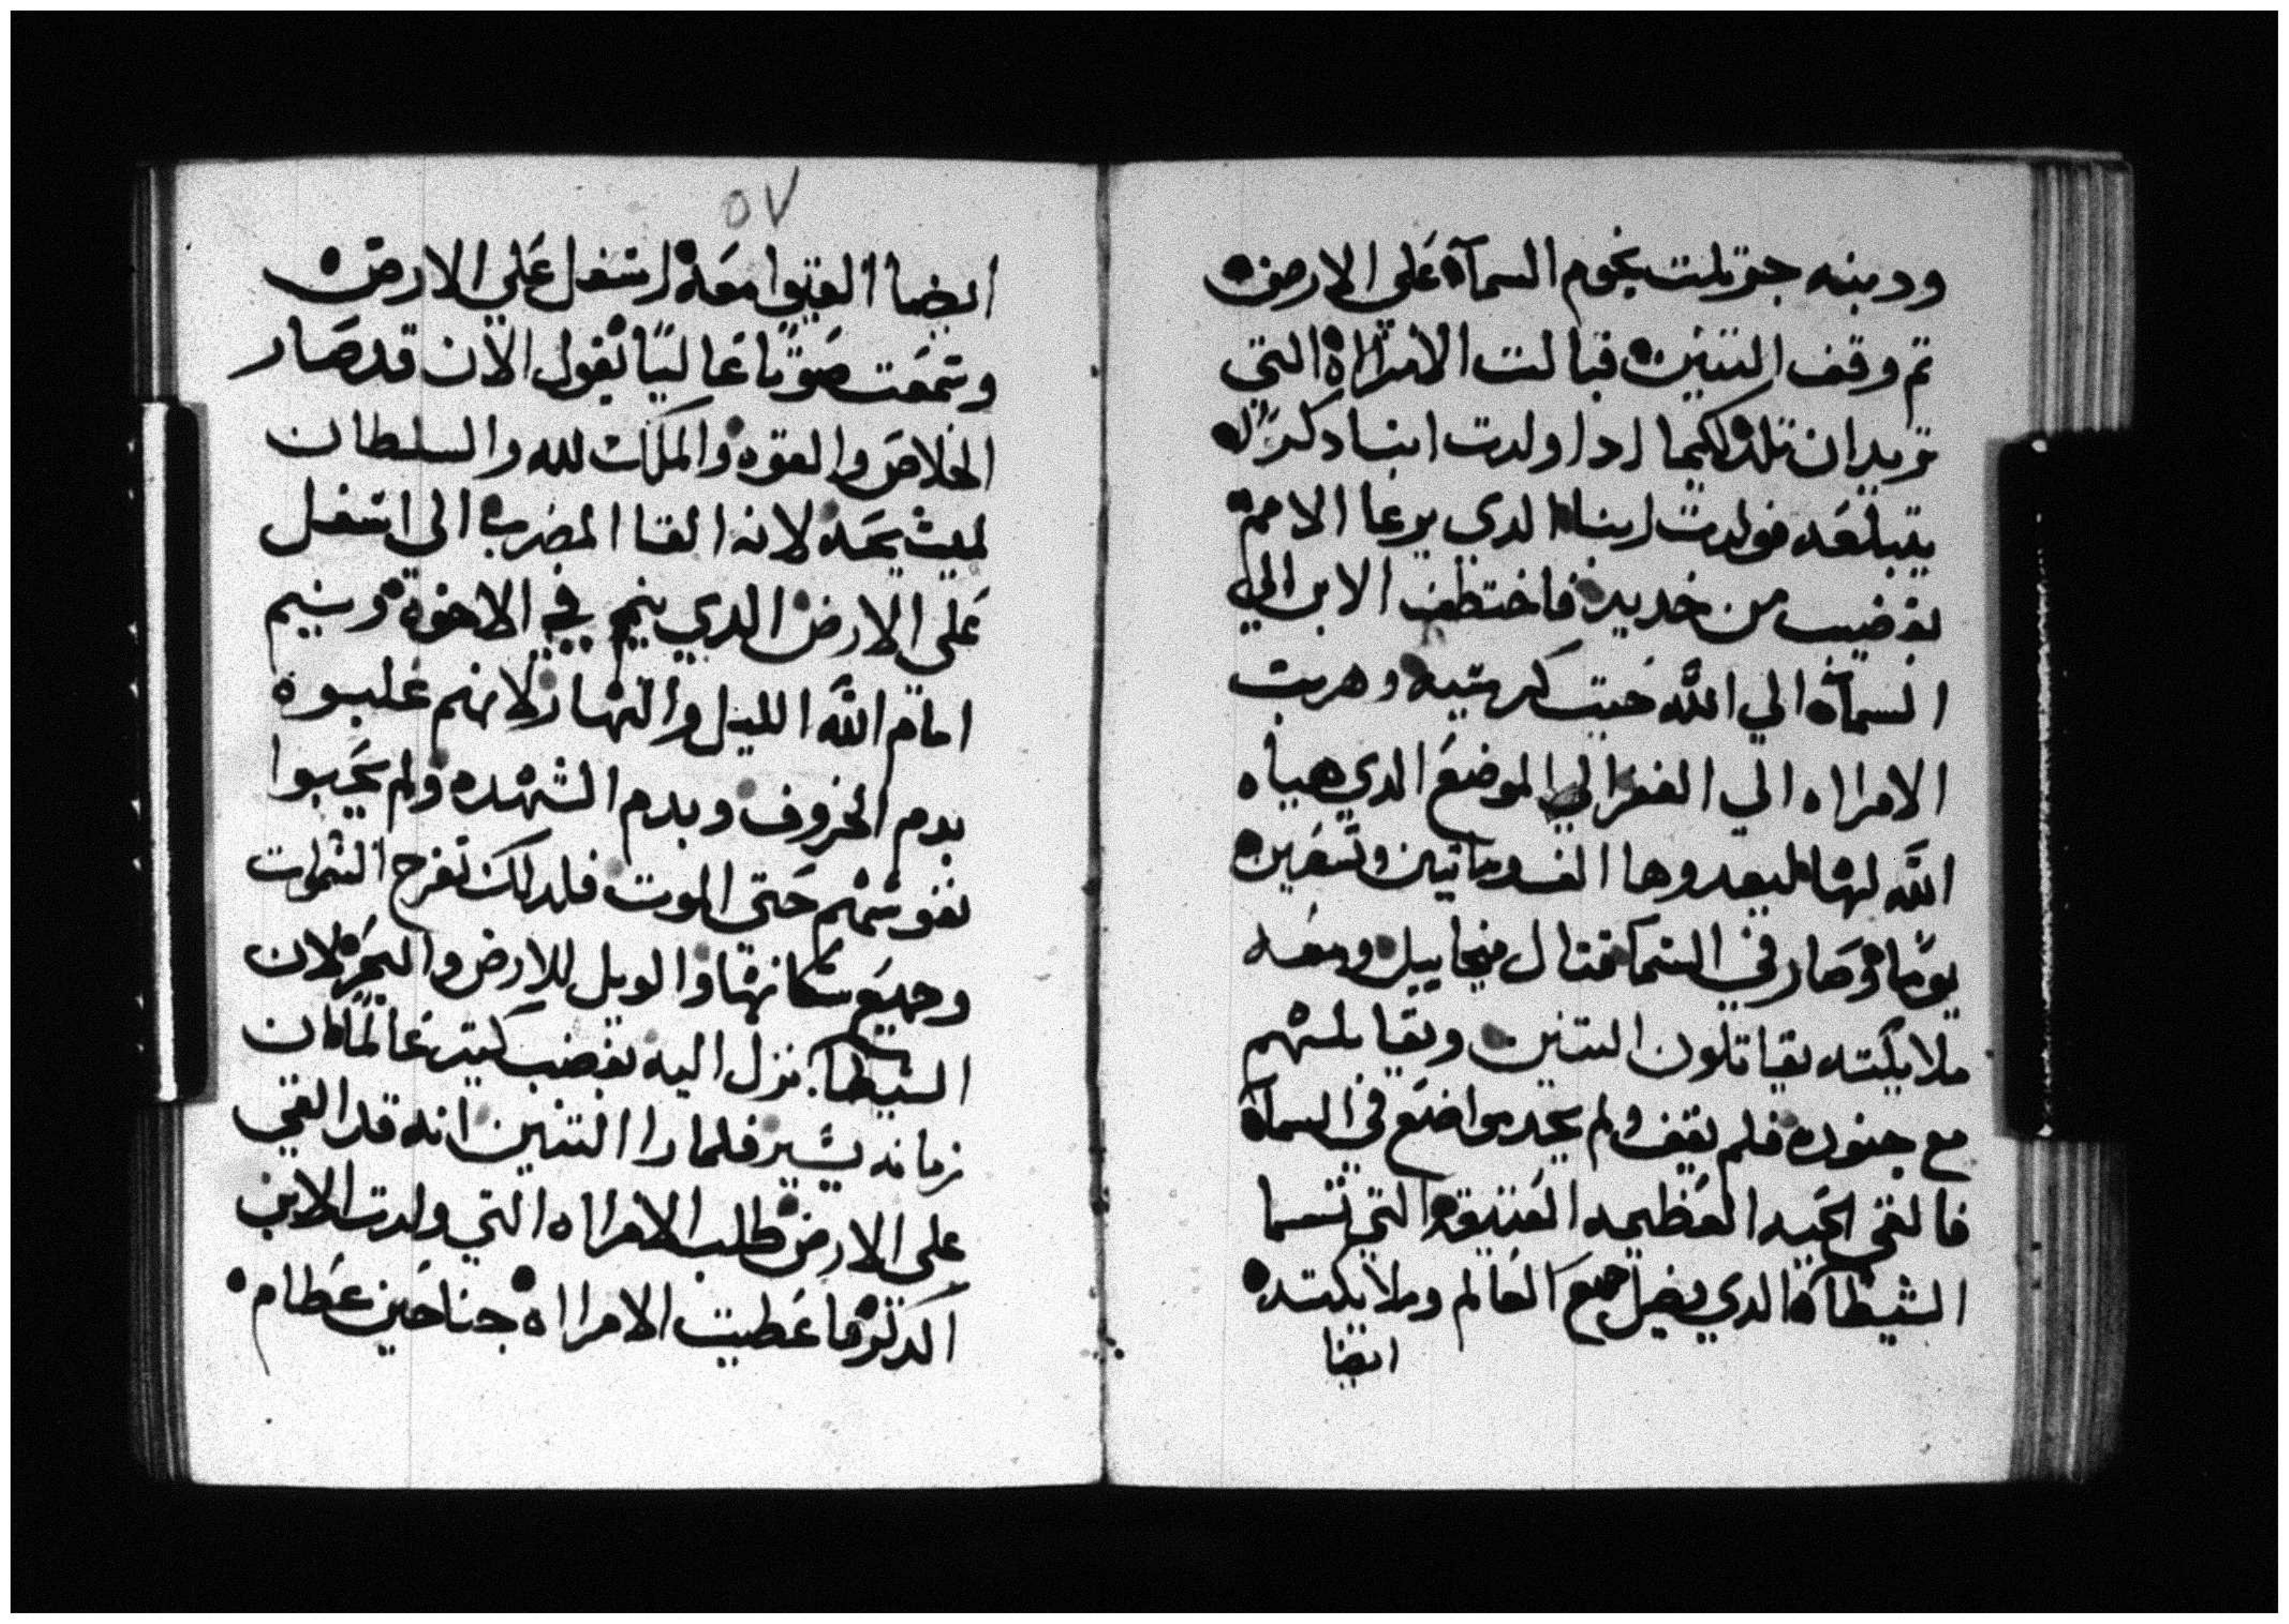 ودنبه جر تلت نجوم السمآه على الارض
تم وقف التنين قبالت الامراه التي
تريد ان تلد لكيما ادا ولدت ابنا دكرا
يتبلعه فولدت ابنا الدي يرعا الامم
بقضيب من حديد فاختطف الابن الي
السمآه الي الله حيت كرسيه وهربت
الامراه الي القفر الي الموضع الدي هياه
الله لها ليعدوها الف وماتين وستين
يوما وصار في السما قتال ميخاييل ومعه
ملايكته يقاتلون التنين ويقابلهم
مع جنوده فلم يقف ولم يجد مواضع في السمآه
فالقي الحيه العظيمه العتيقه التي تسما
الشيطان الدي يضل جميع العالم وملايكته
ايضا
٥٧
ايضا القيوا معه اسفل على الارض
وسمعت صوتا عاليا يقول الان قد صار
الخلاص والقوه والملك لله والسلطان
لمسيحه لانه القا المضرب الي اسفل
على الارض الدي ينم في الاخوة وينيم
امام الله الليل والنهار لانهم غلبوه
بدم الخروف وبدم الشهده ولم يحبوا
نفوسهم حتى الموت فلدلك تفرح السموات
وجميع سكانها والويل للارض والبحر لان
الشيطان نزل اليه بغضب كتير عالما ان
زمانه يسير فلما را التنين انه قد القي
على الارض طلب الامراه التي ولدت الابن
الدكر فاعطيت الامراه جناحين عظام